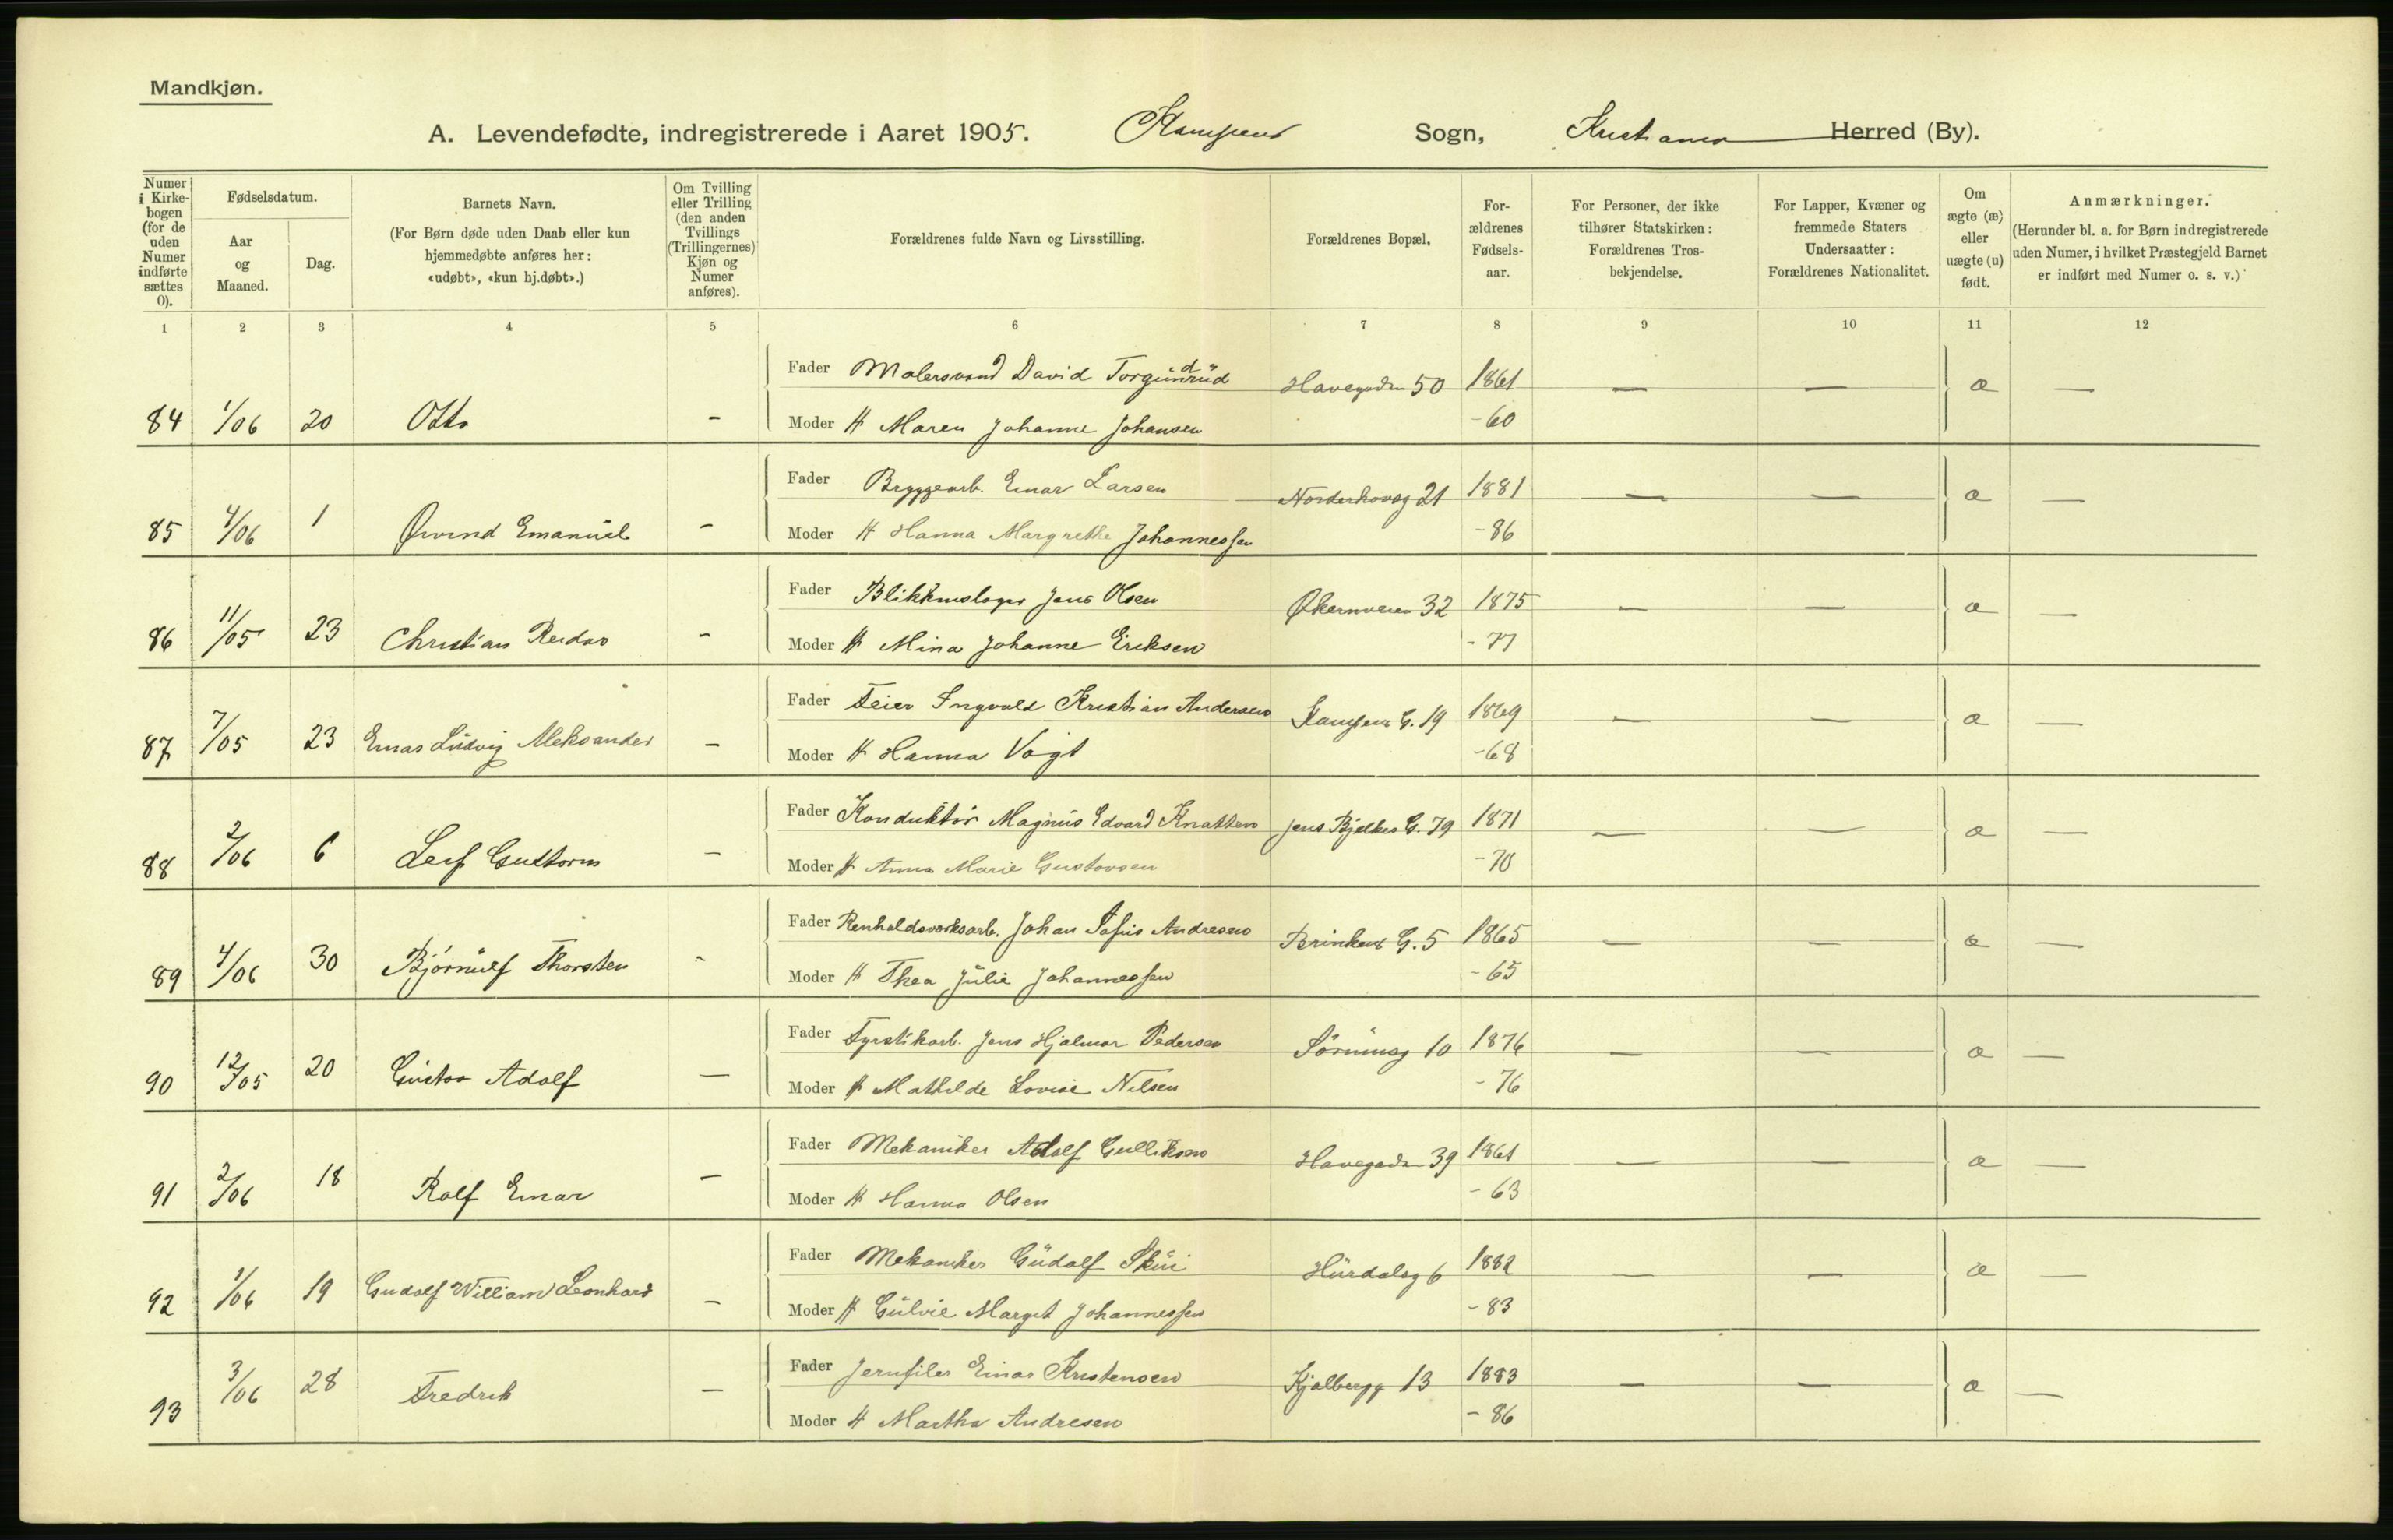 Mandkjøn.
A. Levendefødte, indregistrerede i Aaret 1905. Kampens Sogn, Kristiania Herred (By).
Numer i Kirkebogen (for de uden Numer indførte sættes 0).
Fødselsdatum.
Aar og Maaned.
Dag.
Barnets Navn.
(For Børn døde uden Daab eller kun hjemmedøbte anføres her: «udøbt», «kun hj.døbt».)
Om Tvilling eller Trilling (den anden Tvillings (Trillingernes) Kjøn og Numer anføres).
Forældrenes fulde Navn og Livsstilling.
Forældrenes Bopæl,
Forældrenes Fødselsaar.
For Personer, der ikke tilhører Statskirken: Forældrenes Trosbekjendelse.
For Lapper, Kvæner og fremmede Staters Undersaatter: Forældrenes Nationalitet.
Om ægte (æ) eller uægte (u) født.
Anmærkninger.
(Herunder bl. a. for Børn indregistrerede uden Numer, i hvilket Præstegjeld Barnet er indført med Numer o. s. v.)
1 2 3 4 5 6 7 8 9 10 11 12
Fader Malersvend David Torgundrud Havegaden 50 1861 — — æ —
84 1/06 20 Otto - Moder H Maren Johanne Johansen -60
Fader Bryggearb. Einar Larsen Norderhovsg 21 1881 — — æ —
85 4/06 1 Øivind Emanuel - Moder H Hanna Margrethe Johannessen -86
Fader Blikkenslager Jens Olsen Økernveien 32 1875 — — æ —
86 11/05 23 Christian Reidar - Moder H Mina Johanne Eriksen -77
Fader Feier Ingvald Kristian Andersen Kampens G. 19 1869 — — æ —
87 7/05 23 Einar Ludvig Aleksander - Moder H Hanna Vogt -68
Fader Konduktør Magnus Edvard Knatten Jens Bjelkes G. 79 1871 — — æ —
88 2/06 6 Leif Guttorm - Moder H Anna Marie Gustavsen -70
Fader Renholdsverksarb. Johan Sofus Andresen Brinkens G. 5 1865 — — æ —
89 4/06 30 Bjørnulf Thorsten - Moder H Thea Julie Johannessen -65
Fader Fyrstikarb. Jens Hjalmar Pedersen Sørumsg 10 1876 — — æ —
90 12/05 20 Gustav Adolf — Moder H Mathilde Lovise Nilsen -76
Fader Mekaniker Adolf Gulliksen Havegaden 39 1861 — — æ —
91 2/06 18 Rolf Einar — Moder H Hanna Olsen -63
Fader Mekaniker Gudolf Skui Hurdalsg 6 1882 — — æ —
92 1/06 19 Gudolf William Leonhard — Moder H Gulvie Margit Johannessen -83
Fader Jernfiler Einar Kristensen Kjølbergg 13 1883 — — æ —
93 3/06 28 Fredrik — Moder H Martha Andresen -86